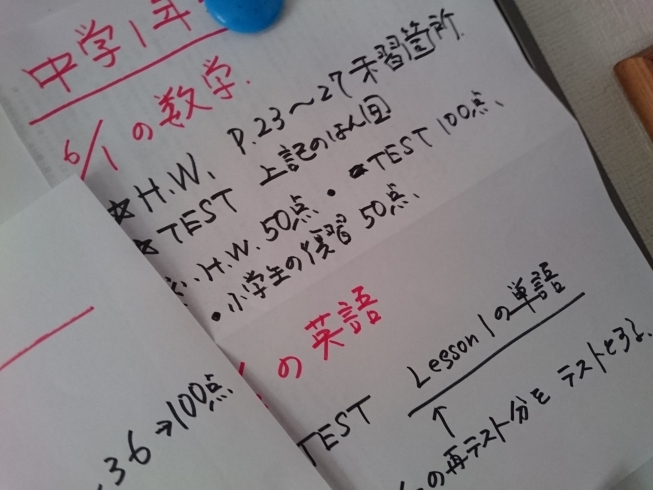 中学1年
6/1の数学.
☆H.W. P.23〜27未習箇所.
★TEST 上記のはんい
H.W. 50点・TEST 100点、
・小学生の復習 50点、
の英語
TEST Lesson 1の単語
↑
の再テスト分もテストとする、
36→100点